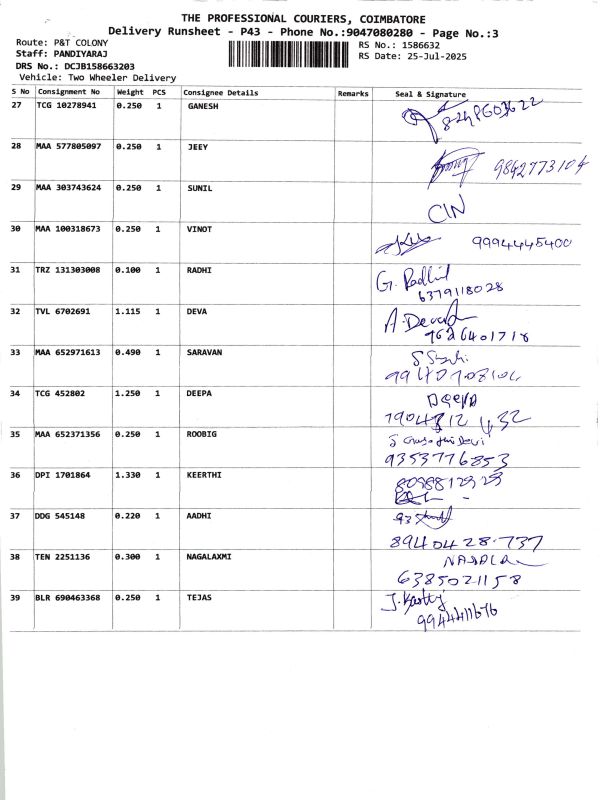 THE PROFESSIONAL COURIERS, COIMBATORE
Delivery Runsheet - P43 - Phone No.:9047080280 - Page No.:3
Route: P&T COLONY
RS No.: 1586632
Staff: PANDIYARAJ
RS Date: 25-Jul-2025
DRS No.: DCJB158663203
Vehicle: Two Wheeler Delivery
S No Consignment No Weight PCS Consignee Details Remarks Seal & Signature
27 TCG 10278941 0.250 1 GANESH
28 MAA 577805097 0.250 1 JEEY
9842773104
29 MAA 303743624 0.250 1 SUNIL
CIN
30 MAA 100318673 0.250 1 VINOT
9994445400
31 TRZ 131303008 0.100 1 RADHI
G. Radhi
6379118028
32 TVL 6702691 1.115 1 DEVA
A. Deva
7626401718
33 MAA 652971613 0.490 1 SARAVAN
34 TCG 452802 1.250 1 DEEPA
Deepa
35 MAA 652371356 0.250 1 ROOBIG
9353776853
36 DPI 1701864 1.330 1 KEERTHI
37 DDG 545148 0.220 1 AADHI
93
8940428737
38 TEN 2251136 0.300 1 NAGALAXMI
6385021158
39 BLR 690463368 0.250 1 TEJAS
9944411676